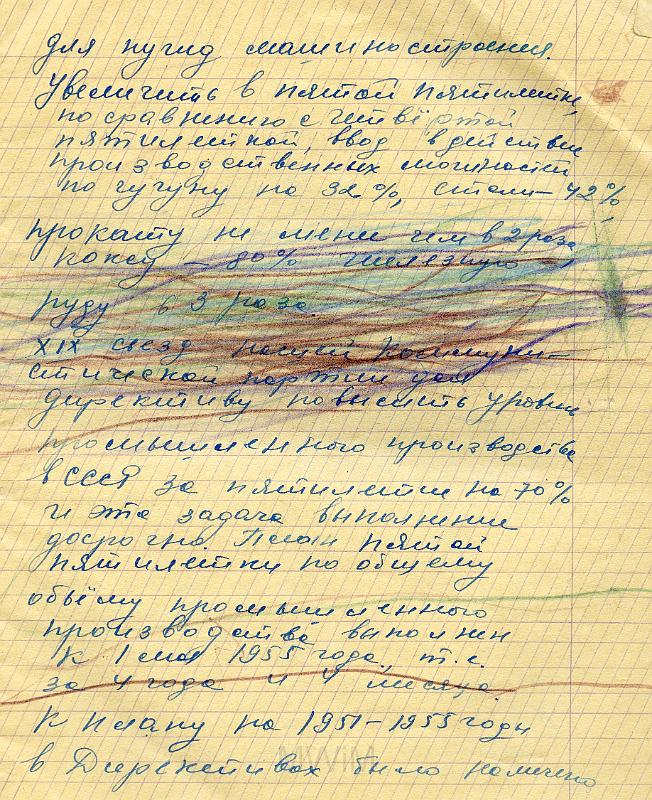 для нужд машиностроения.
Увеличить в пятой пятилетке,
по сравнению с четвёртой
пятилеткой, ввод в действие
производственных мощностей
по чугуну на 32%, стали – 42%,
прокату не мени чем в 2 раза
коксу – 80% железную
руду в 3 раза.
XIX съезд нашей Коммуни-
стической партии дал
директиву повысить уровень
промышленного производства
в СССР за пятилетие на 70%
и эта задача выполнение
досрочно. План пятой
пятилетки по общему
объёму промышленного
производства выполнен
к 1 мая 1955 года, т.е.
за 4 года и 4 месяца.
К плану на 1951–1955 годы
в Директивах было намечено
MWiM